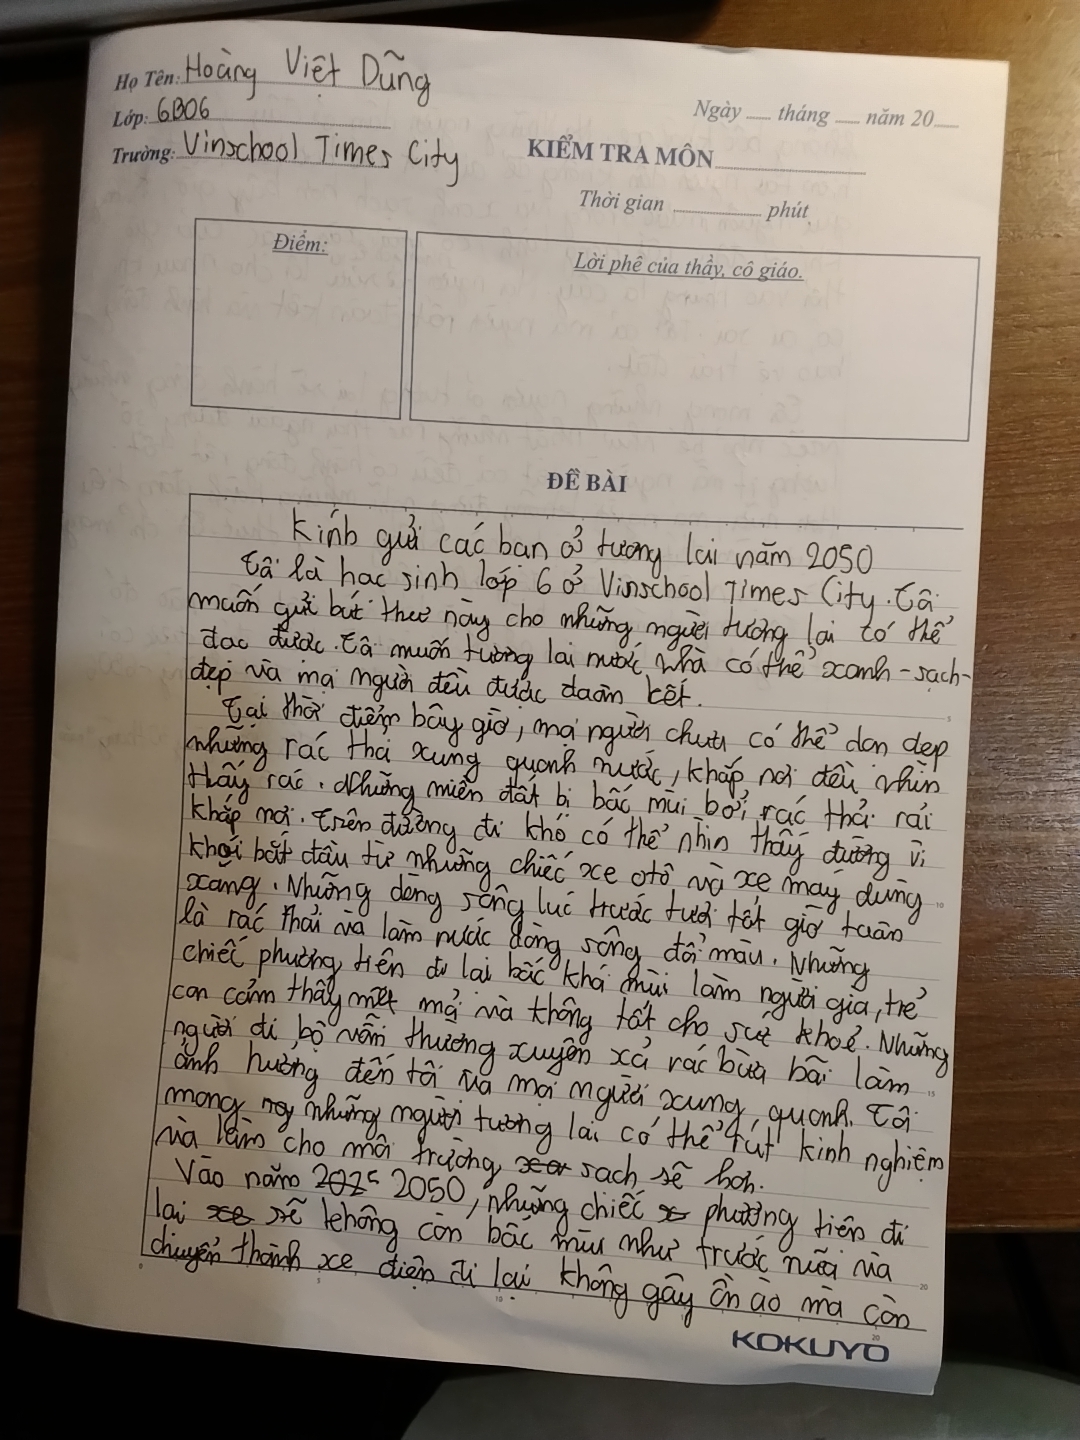 Họ Tên: Hoàng Việt Dũng
Lớp: 6B06
Trường: Vinschool Times City
Ngày tháng năm 20
KIỂM TRA MÔN
Thời gian phút
Điểm:
Lời phê của thầy, cô giáo.
ĐỀ BÀI
Kính gửi các bạn ở tương lai năm 2050
Tôi là học sinh lớp 6 ở Vinschool Times City. Tôi
muốn gửi bức thư này cho những người tương lai có thể
đọc được. Tôi muốn tương lai nước nhà có thể xanh-sạch-
đẹp và mọi người đều được đoàn kết.
Tại thời điểm bây giờ, mọi người chưa có thể dọn dẹp
những rác thải xung quanh nước, khắp nơi đều nhìn
thấy rác. Những miền đất bị bốc mùi bởi rác thải rải
khắp nơi. Trên đường đi khó có thể nhìn thấy đường vì
khói bắt đầu từ những chiếc xe otô và xe máy dùng
xăng. Những dòng sông lúc trước tươi tốt giờ toàn
là rác thải và làm nước dòng sông đổi màu. Những
chiếc phương tiện đi lại bốc khói mùi làm người già, trẻ
con cảm thấy mệt mỏi và không tốt cho sức khoẻ. Những
người đi bộ vẫn thường xuyên xả rác bừa bãi làm
ảnh hưởng đến tôi và mọi người xung quanh. Tôi
mong những người tương lai có thể rút kinh nghiệm
và làm cho môi trường sạch sẽ hơn.
Vào năm 2050, những chiếc phương tiện đi
lại sẽ không còn bốc mùi như trước nữa và
chuyển thành xe điện đi lại không gây ồn ào mà còn
KOKUYO